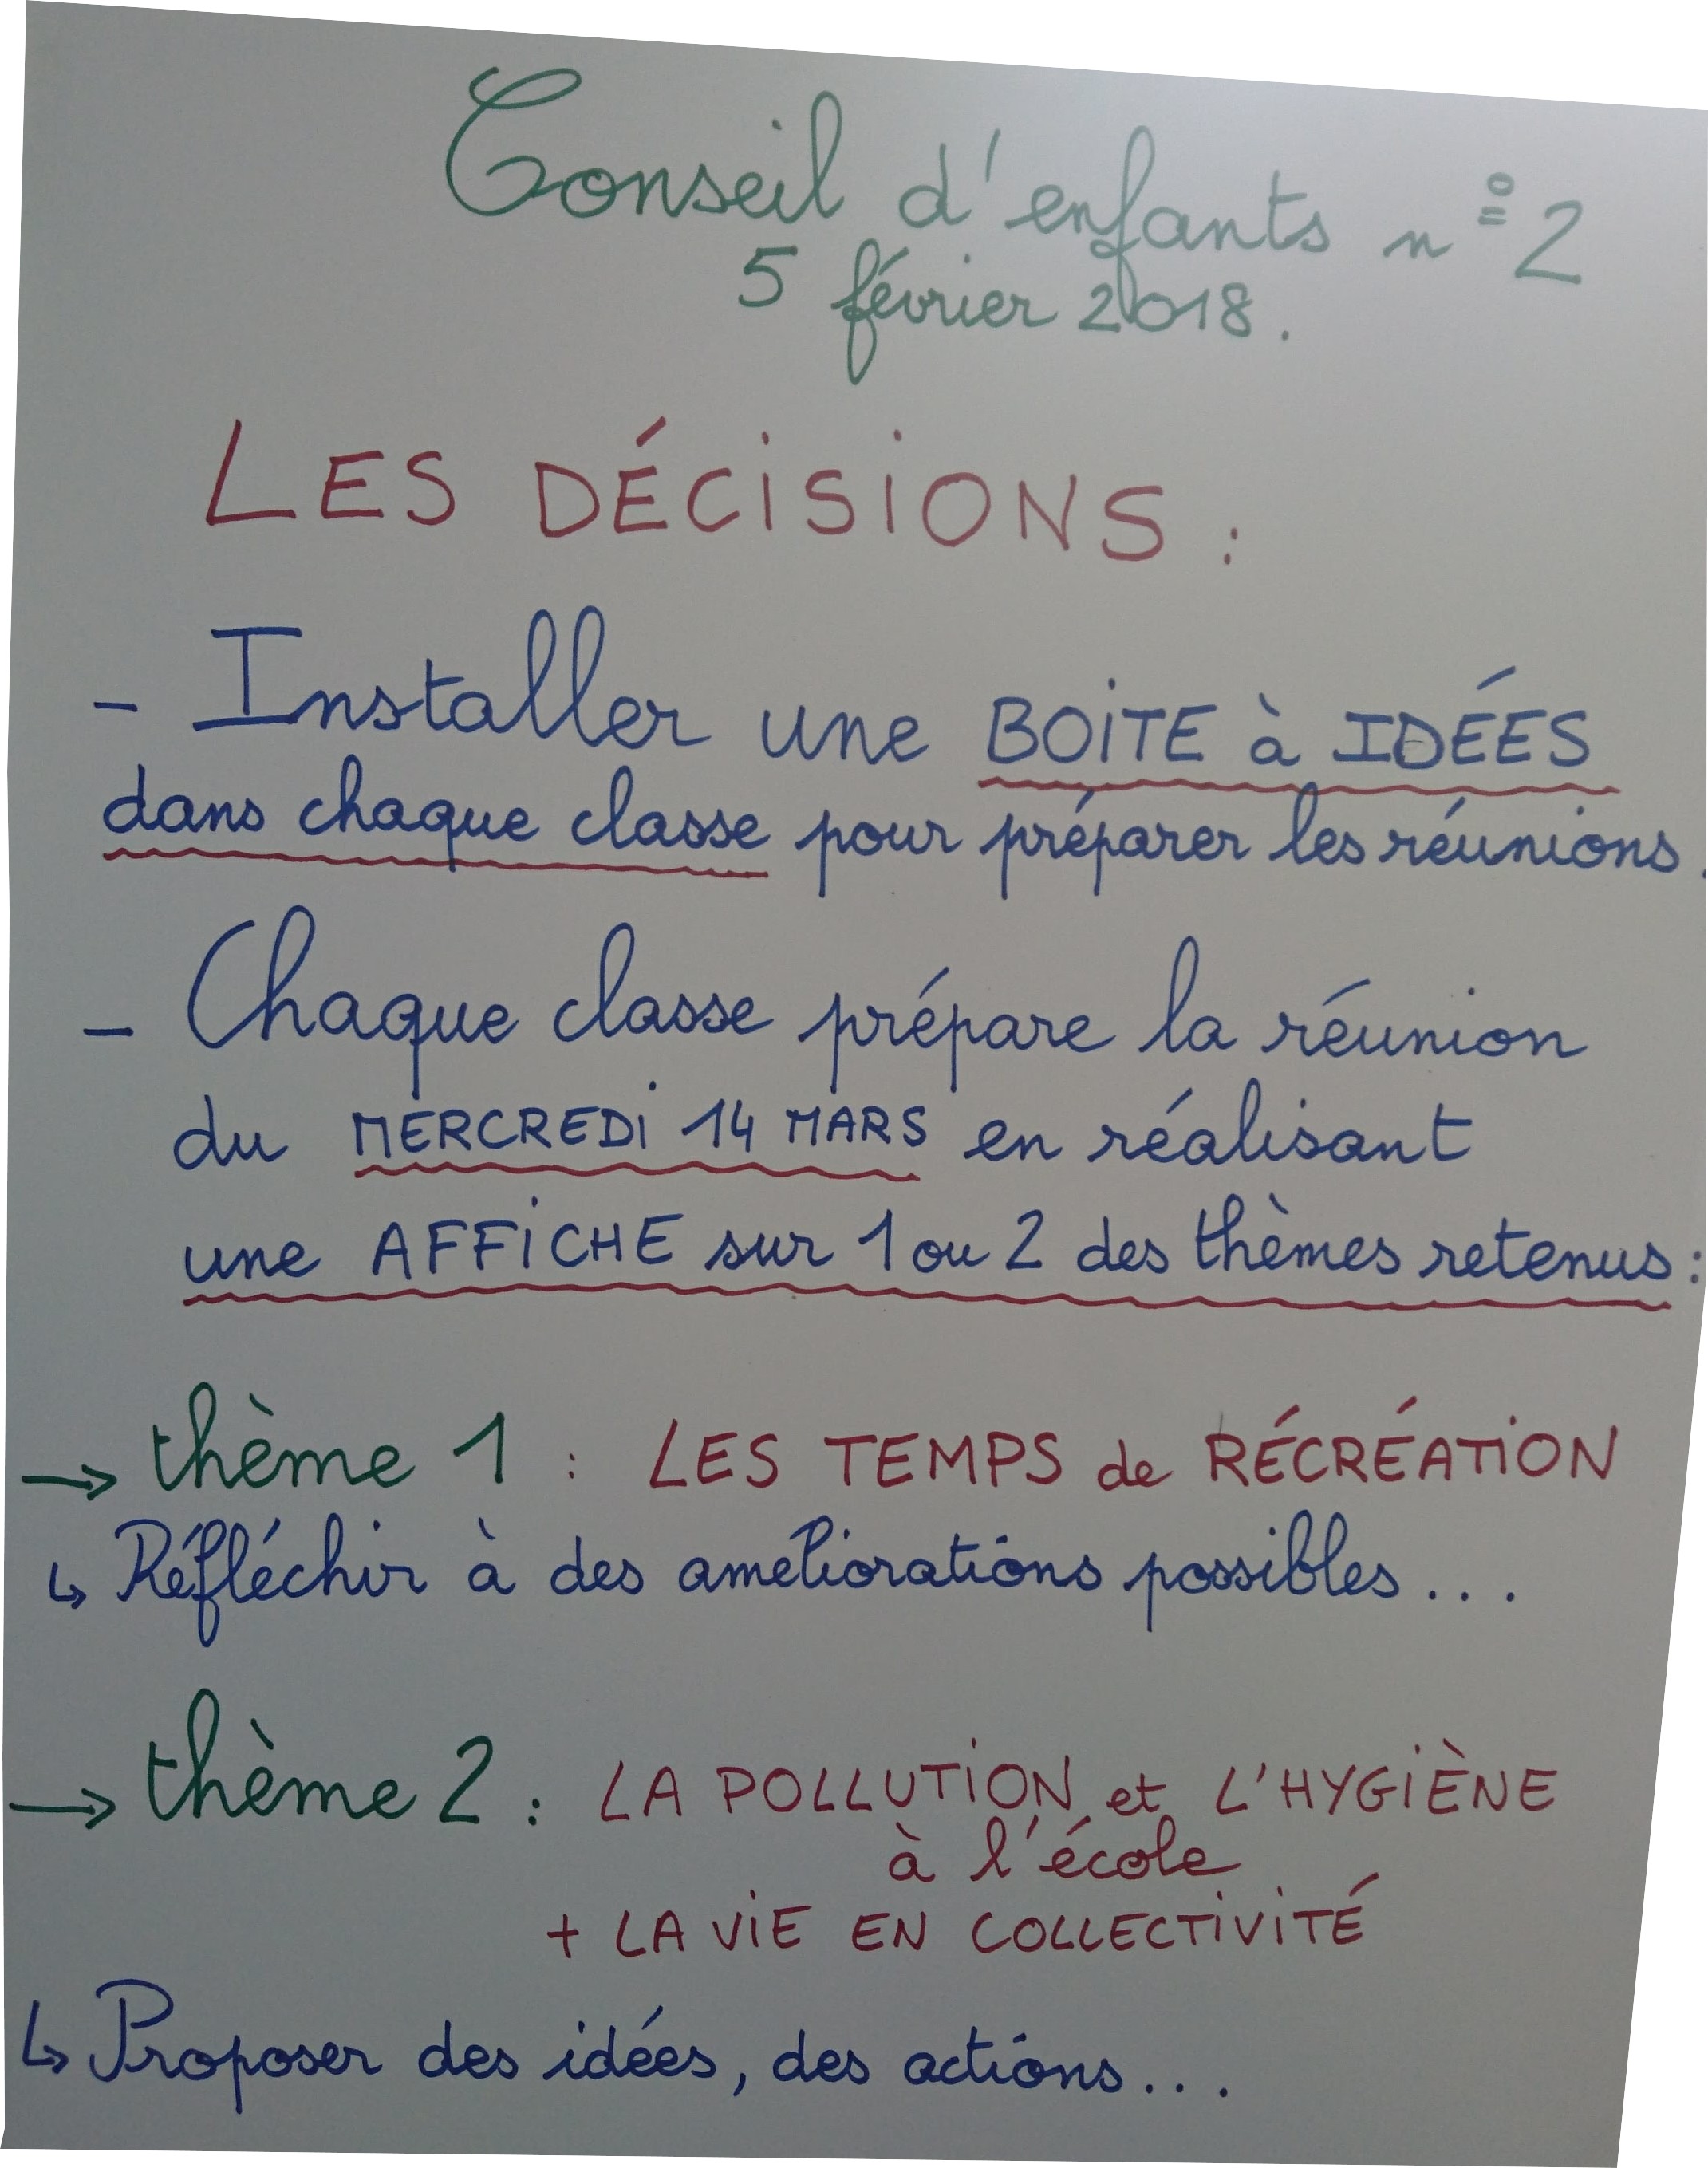 Conseil d'enfants n° 2
5 février 2018.
LES DÉCISIONS :
- Installer une BOITE à IDÉES
dans chaque classe pour préparer les réunions.
- Chaque classe prépare la réunion
du MERCREDI 14 MARS en réalisant
une AFFICHE sur 1 ou 2 des thèmes retenus :
→ thème 1 : LES TEMPS de RÉCRÉATION
↳ Réfléchir à des améliorations possibles...
→ thème 2 : LA POLLUTION et L'HYGIÈNE
à l'école
+ LA VIE EN COLLECTIVITÉ
↳ Proposer des idées, des actions...